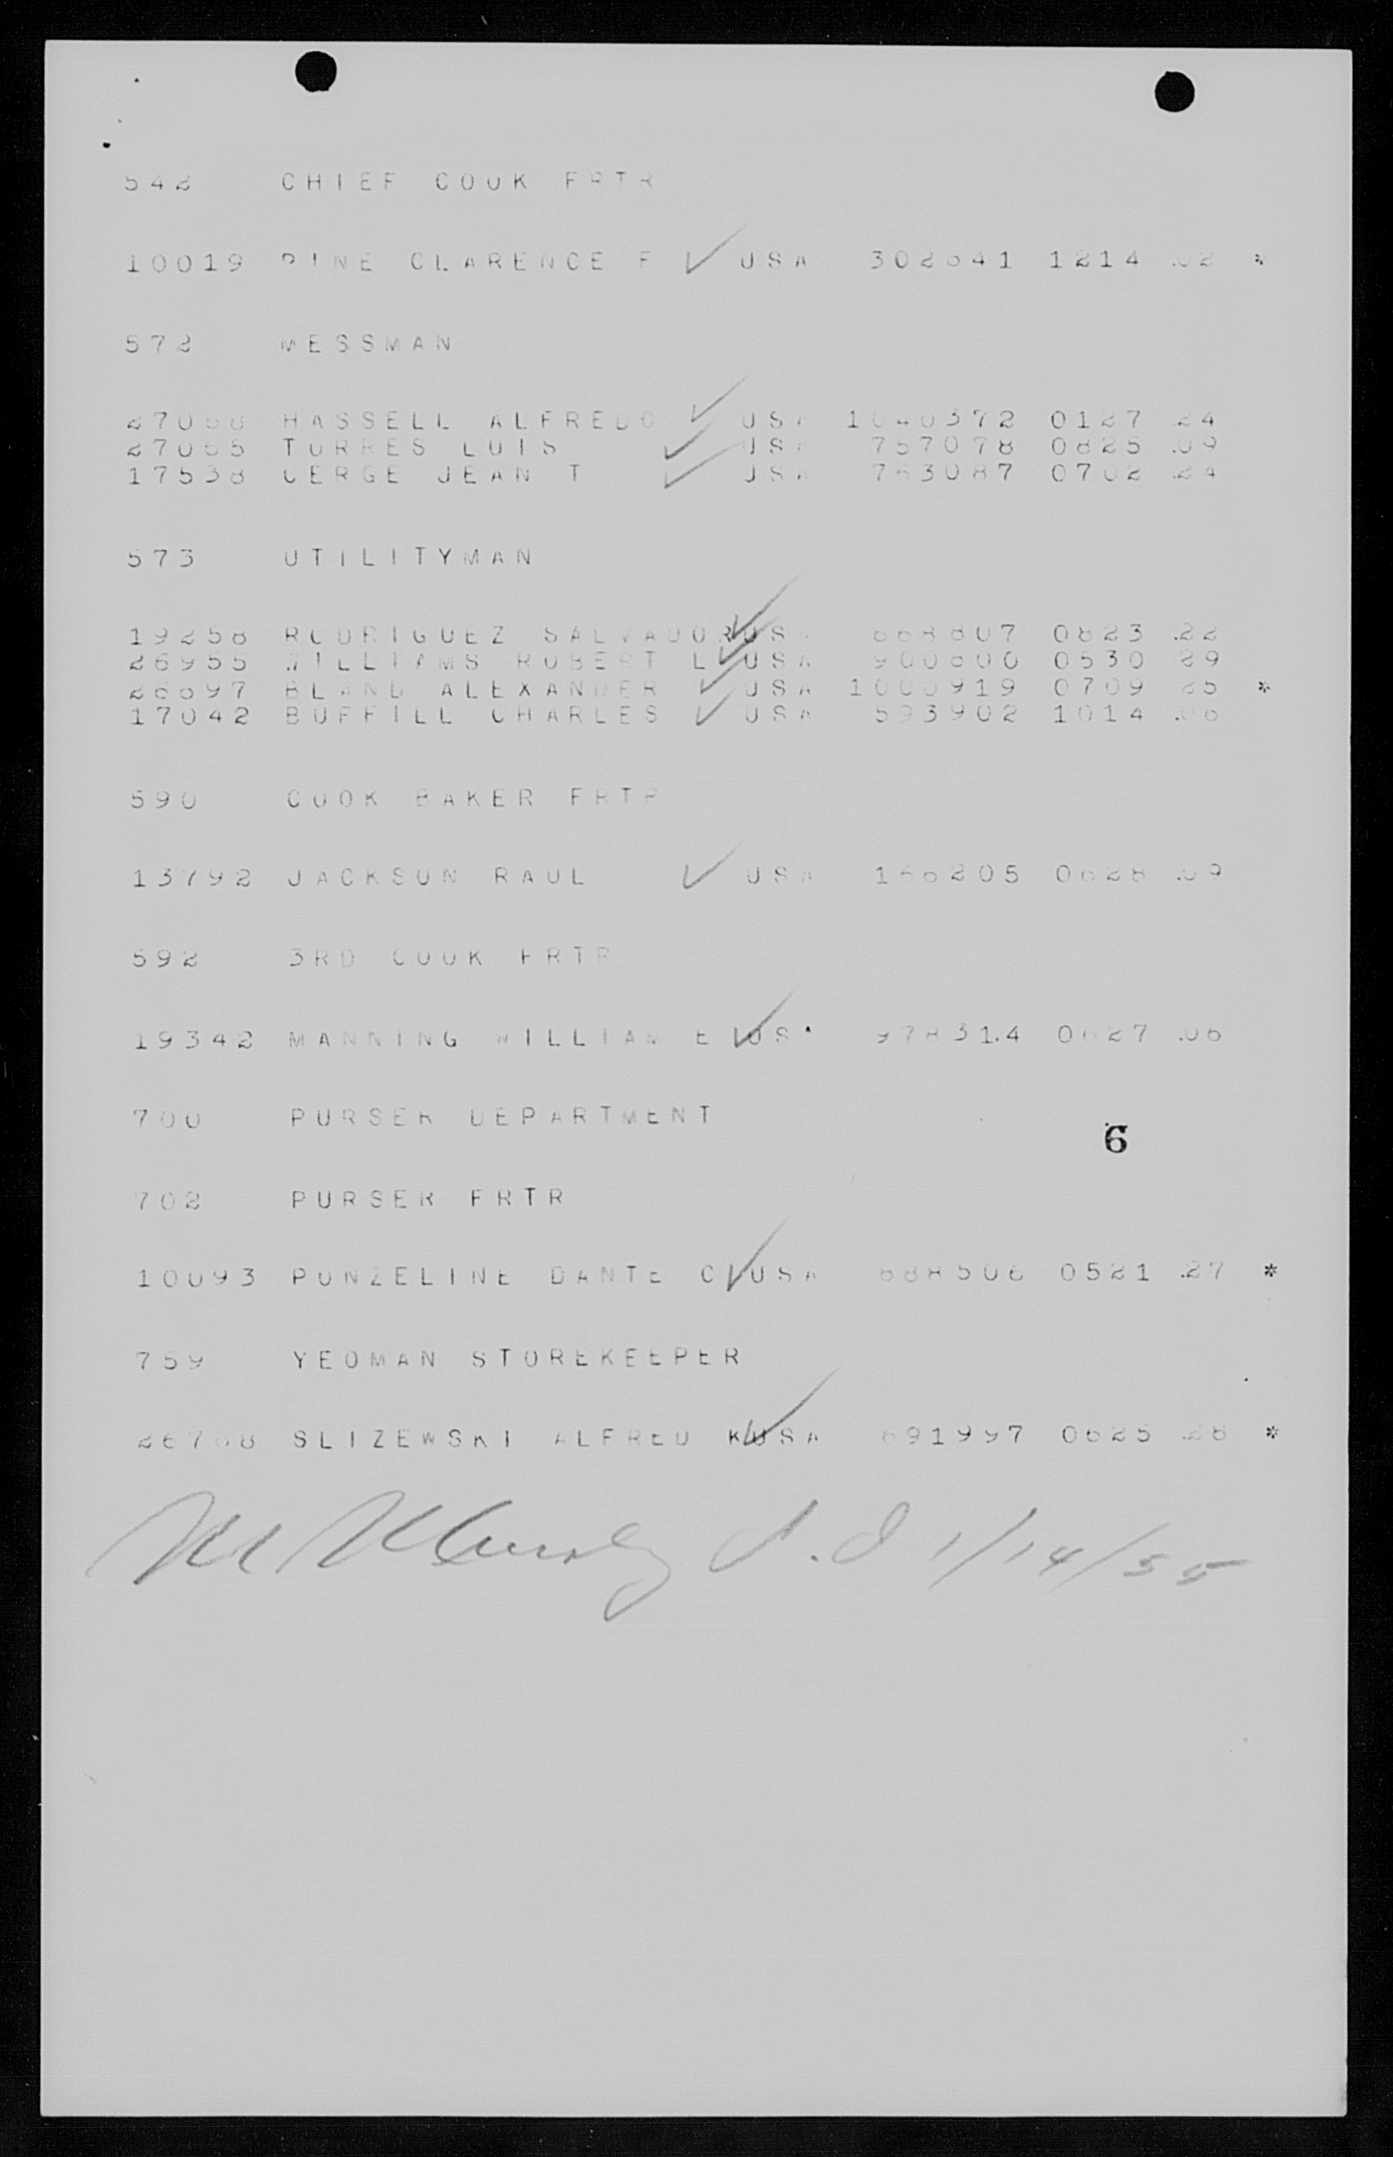 542 CHIEF COOK FRTR
10019 PINE CLARENCE F ✓ USA 302641 1214 .02 *
572 MESSMAN
HASSELL ALFREDO ✓ USA 1040372 0127 24
TORRES LUIS ✓ USA 757078 0825 .09
17538 CERGE JEAN T ✓ USA 763087 0702 .24
573 UTILITYMAN
19258 RODRIGUEZ SALVADOR ✓ USA 0823 .22
26955 WILLIAMS ROBERT L ✓ USA 0530 29
26697 BLAND ALEXANDER ✓ USA 1000919 0709 25 *
17042 BUFFILL CHARLES ✓ USA 593902 1014 .06
590 COOK BAKER FRTR
13792 JACKSON RAUL ✓ USA 166205 0628 .09
592 3RD COOK FRTR
19342 MANNING WILLIAM E ✓ US 978314 0627 .06
700 PURSER DEPARTMENT
6
702 PURSER FRTR
10093 PONZELINE DANTE C ✓ USA 688506 0521 .27 *
759 YEOMAN STOREKEEPER
SLIZEWSKI ALFRED K ✓ USA 691997 0625 .26 *
1/14/55